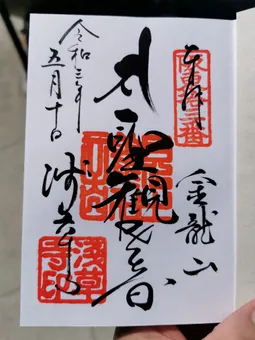 奉拝
坂東拾三番
金龍山
聖観世音
令和三年
五月十日
浅草寺
浅草寺印